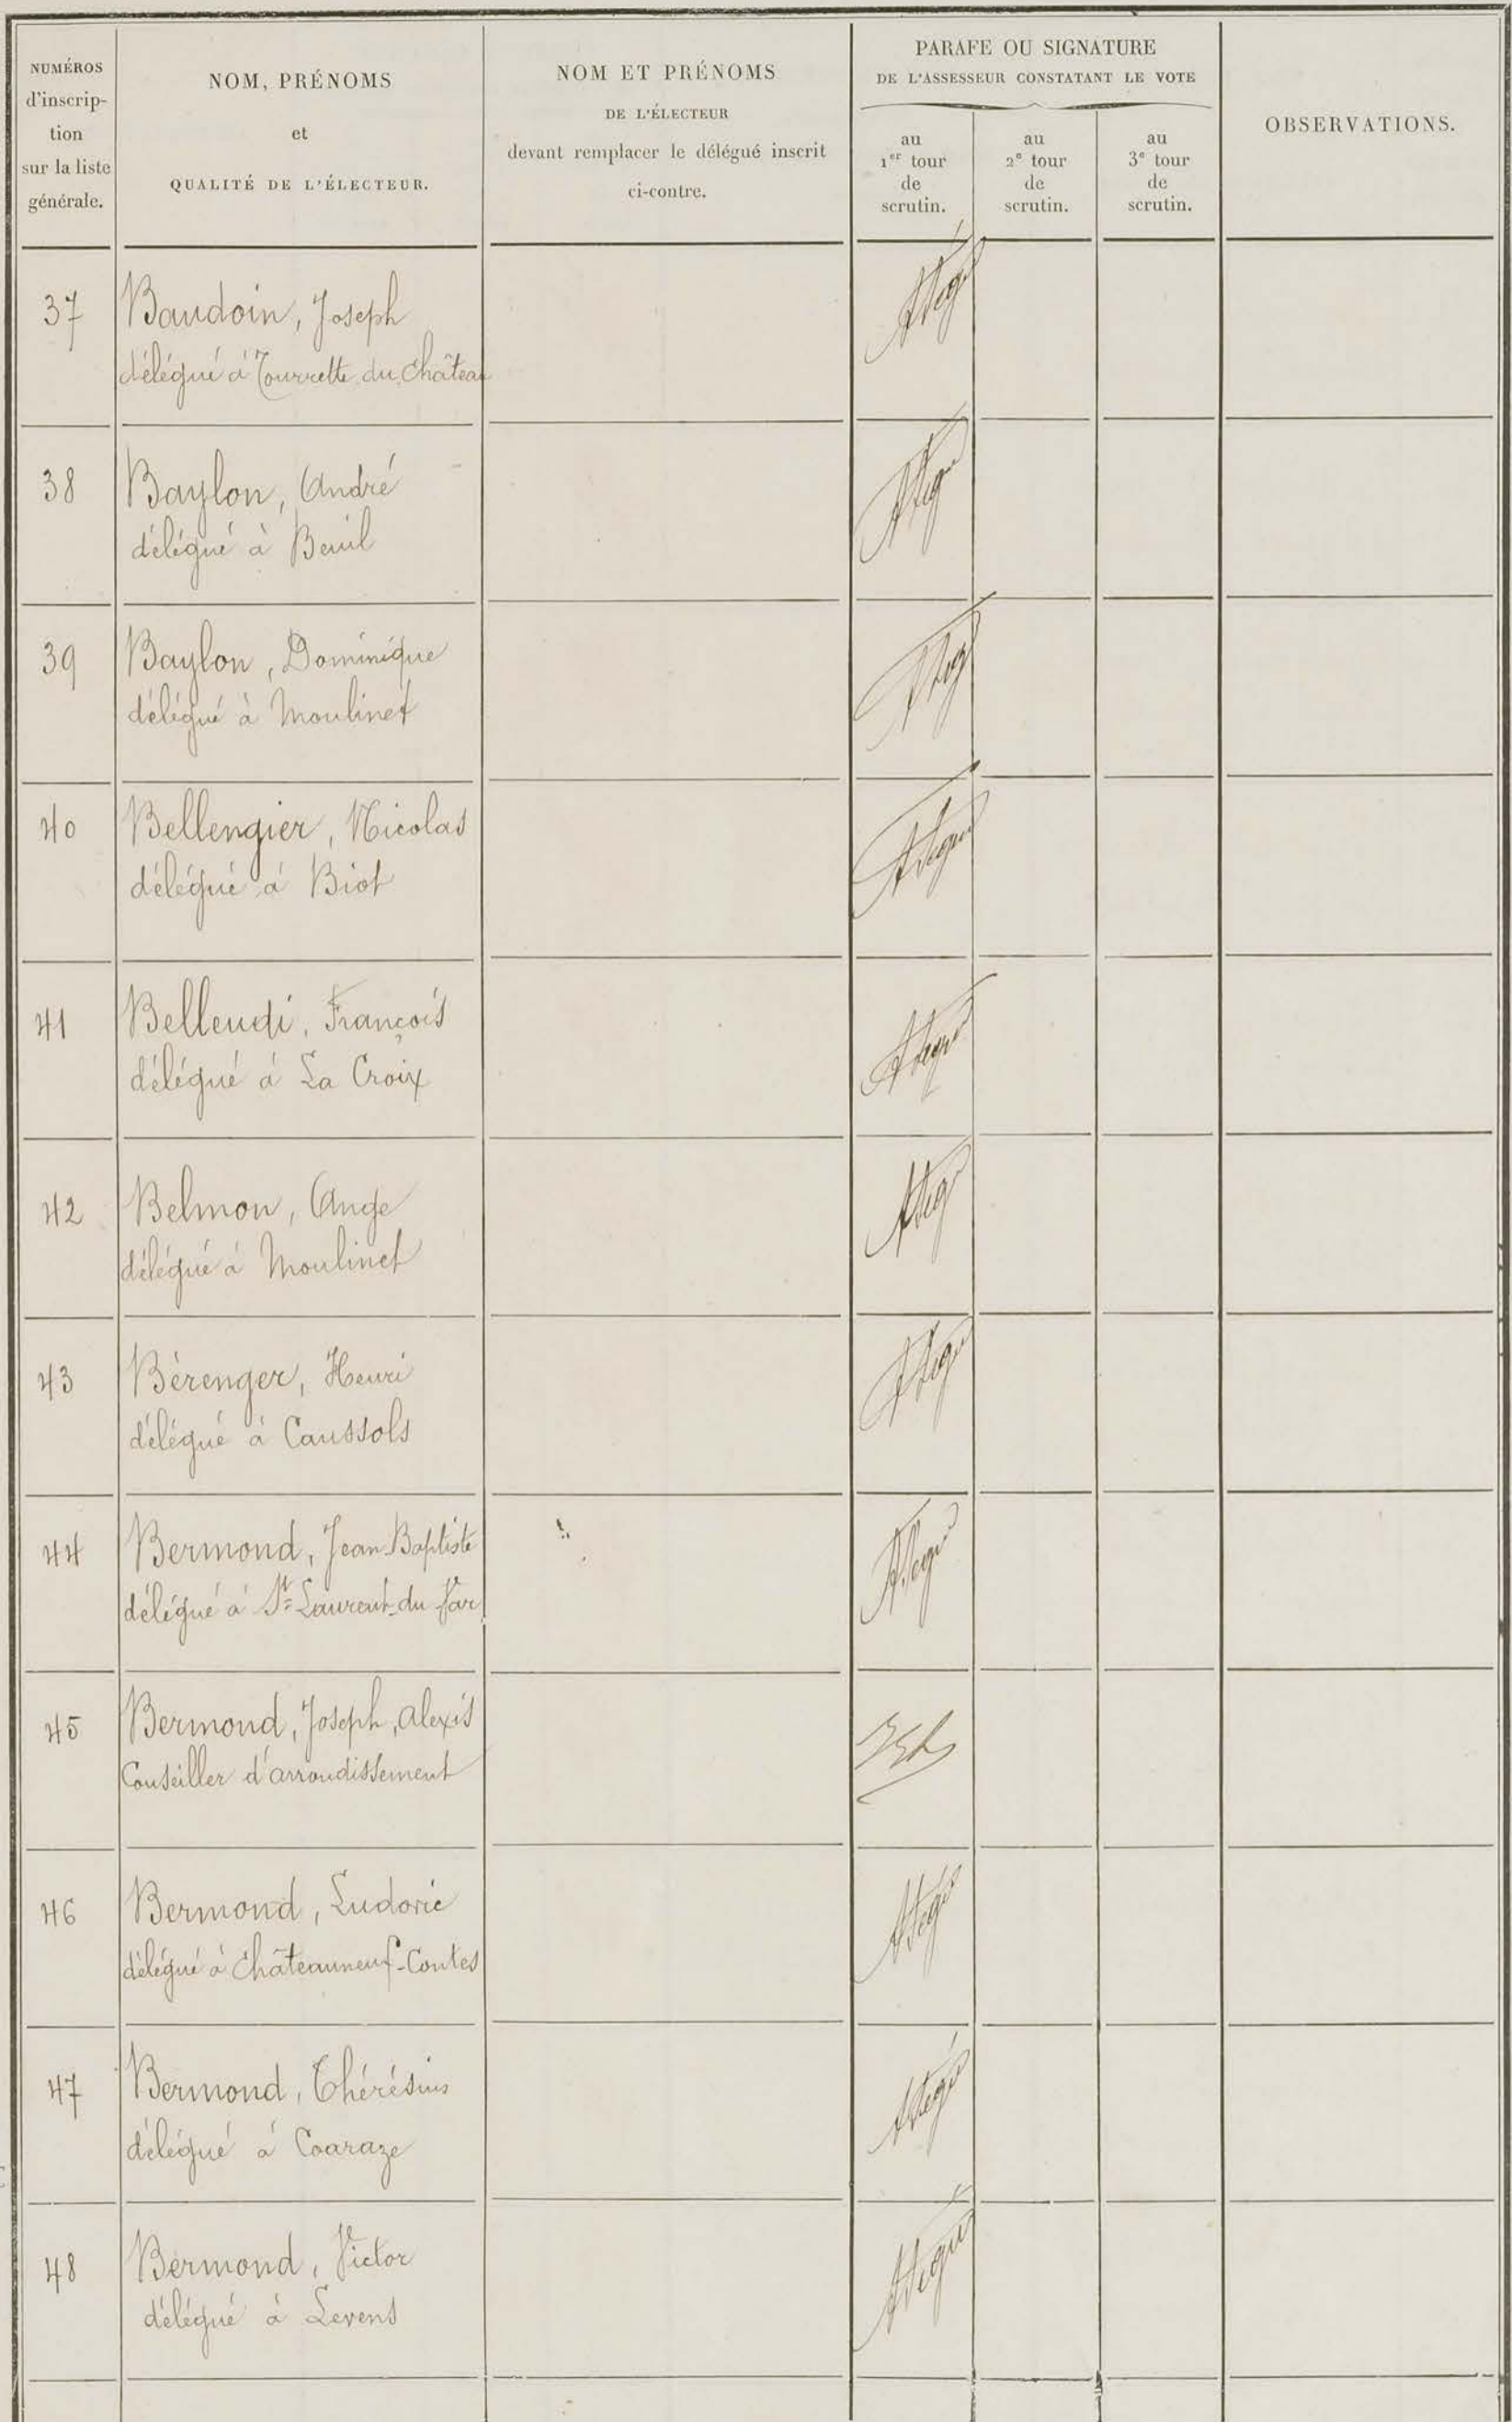 NUMÉROS
d'inscrip-
tion
sur la liste
générale.
NOM, PRÉNOMS
et
QUALITÉ DE L'ÉLECTEUR.
NOM ET PRÉNOMS
DE L'ÉLECTEUR
devant remplacer le délégué inscrit
ci-contre.
PARAFE OU SIGNATURE
DE L'ASSESSEUR CONSTATANT LE VOTE
au
1er tour
de
scrutin.
au
2e tour
de
scrutin.
au
3e tour
de
scrutin.
OBSERVATIONS.
37 Baudoin, Joseph
délégué à Tourrette du Château
38 Baylon, André
délégué à Beuil
39 Baylon, Dominique
délégué à Moulinet
40 Bellengier, Nicolas
délégué à Biot
41 Belleudi, François
délégué à La Croix
42 Belmon, Ange
délégué à Moulinet
43 Bérenger, Henri
délégué à Caussols
44 Bermond, Jean-Baptiste
délégué à St Laurent-du Var
45 Bermond, Joseph, Alexis
Conseiller d'arrondissement
46 Bermond, Ludovic
délégué à Châteauneuf-Contes
47 Bermond, Thérésius
délégué à Coaraze
48 Bermond, Victor
délégué à Levens